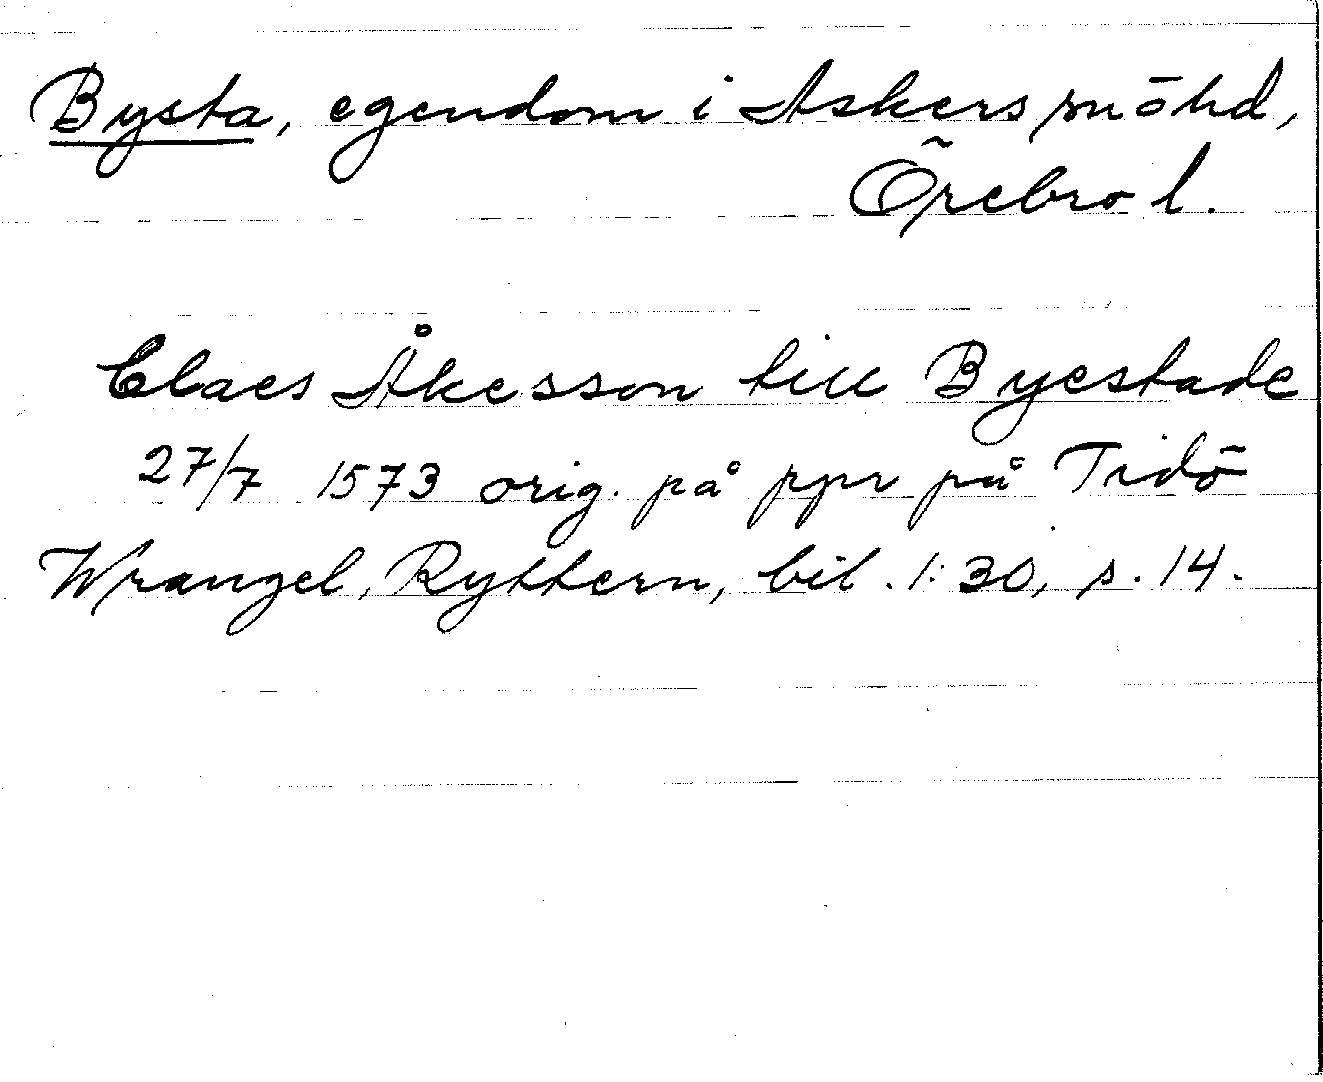 Bysta, egendom i Askers sn öhd,
Örebro l.
Claes Åkesson till Byestade
27/7 1573 orig. på ppr på Tidö
Wrangel, Ryttern, bil. 1:30, s. 14.